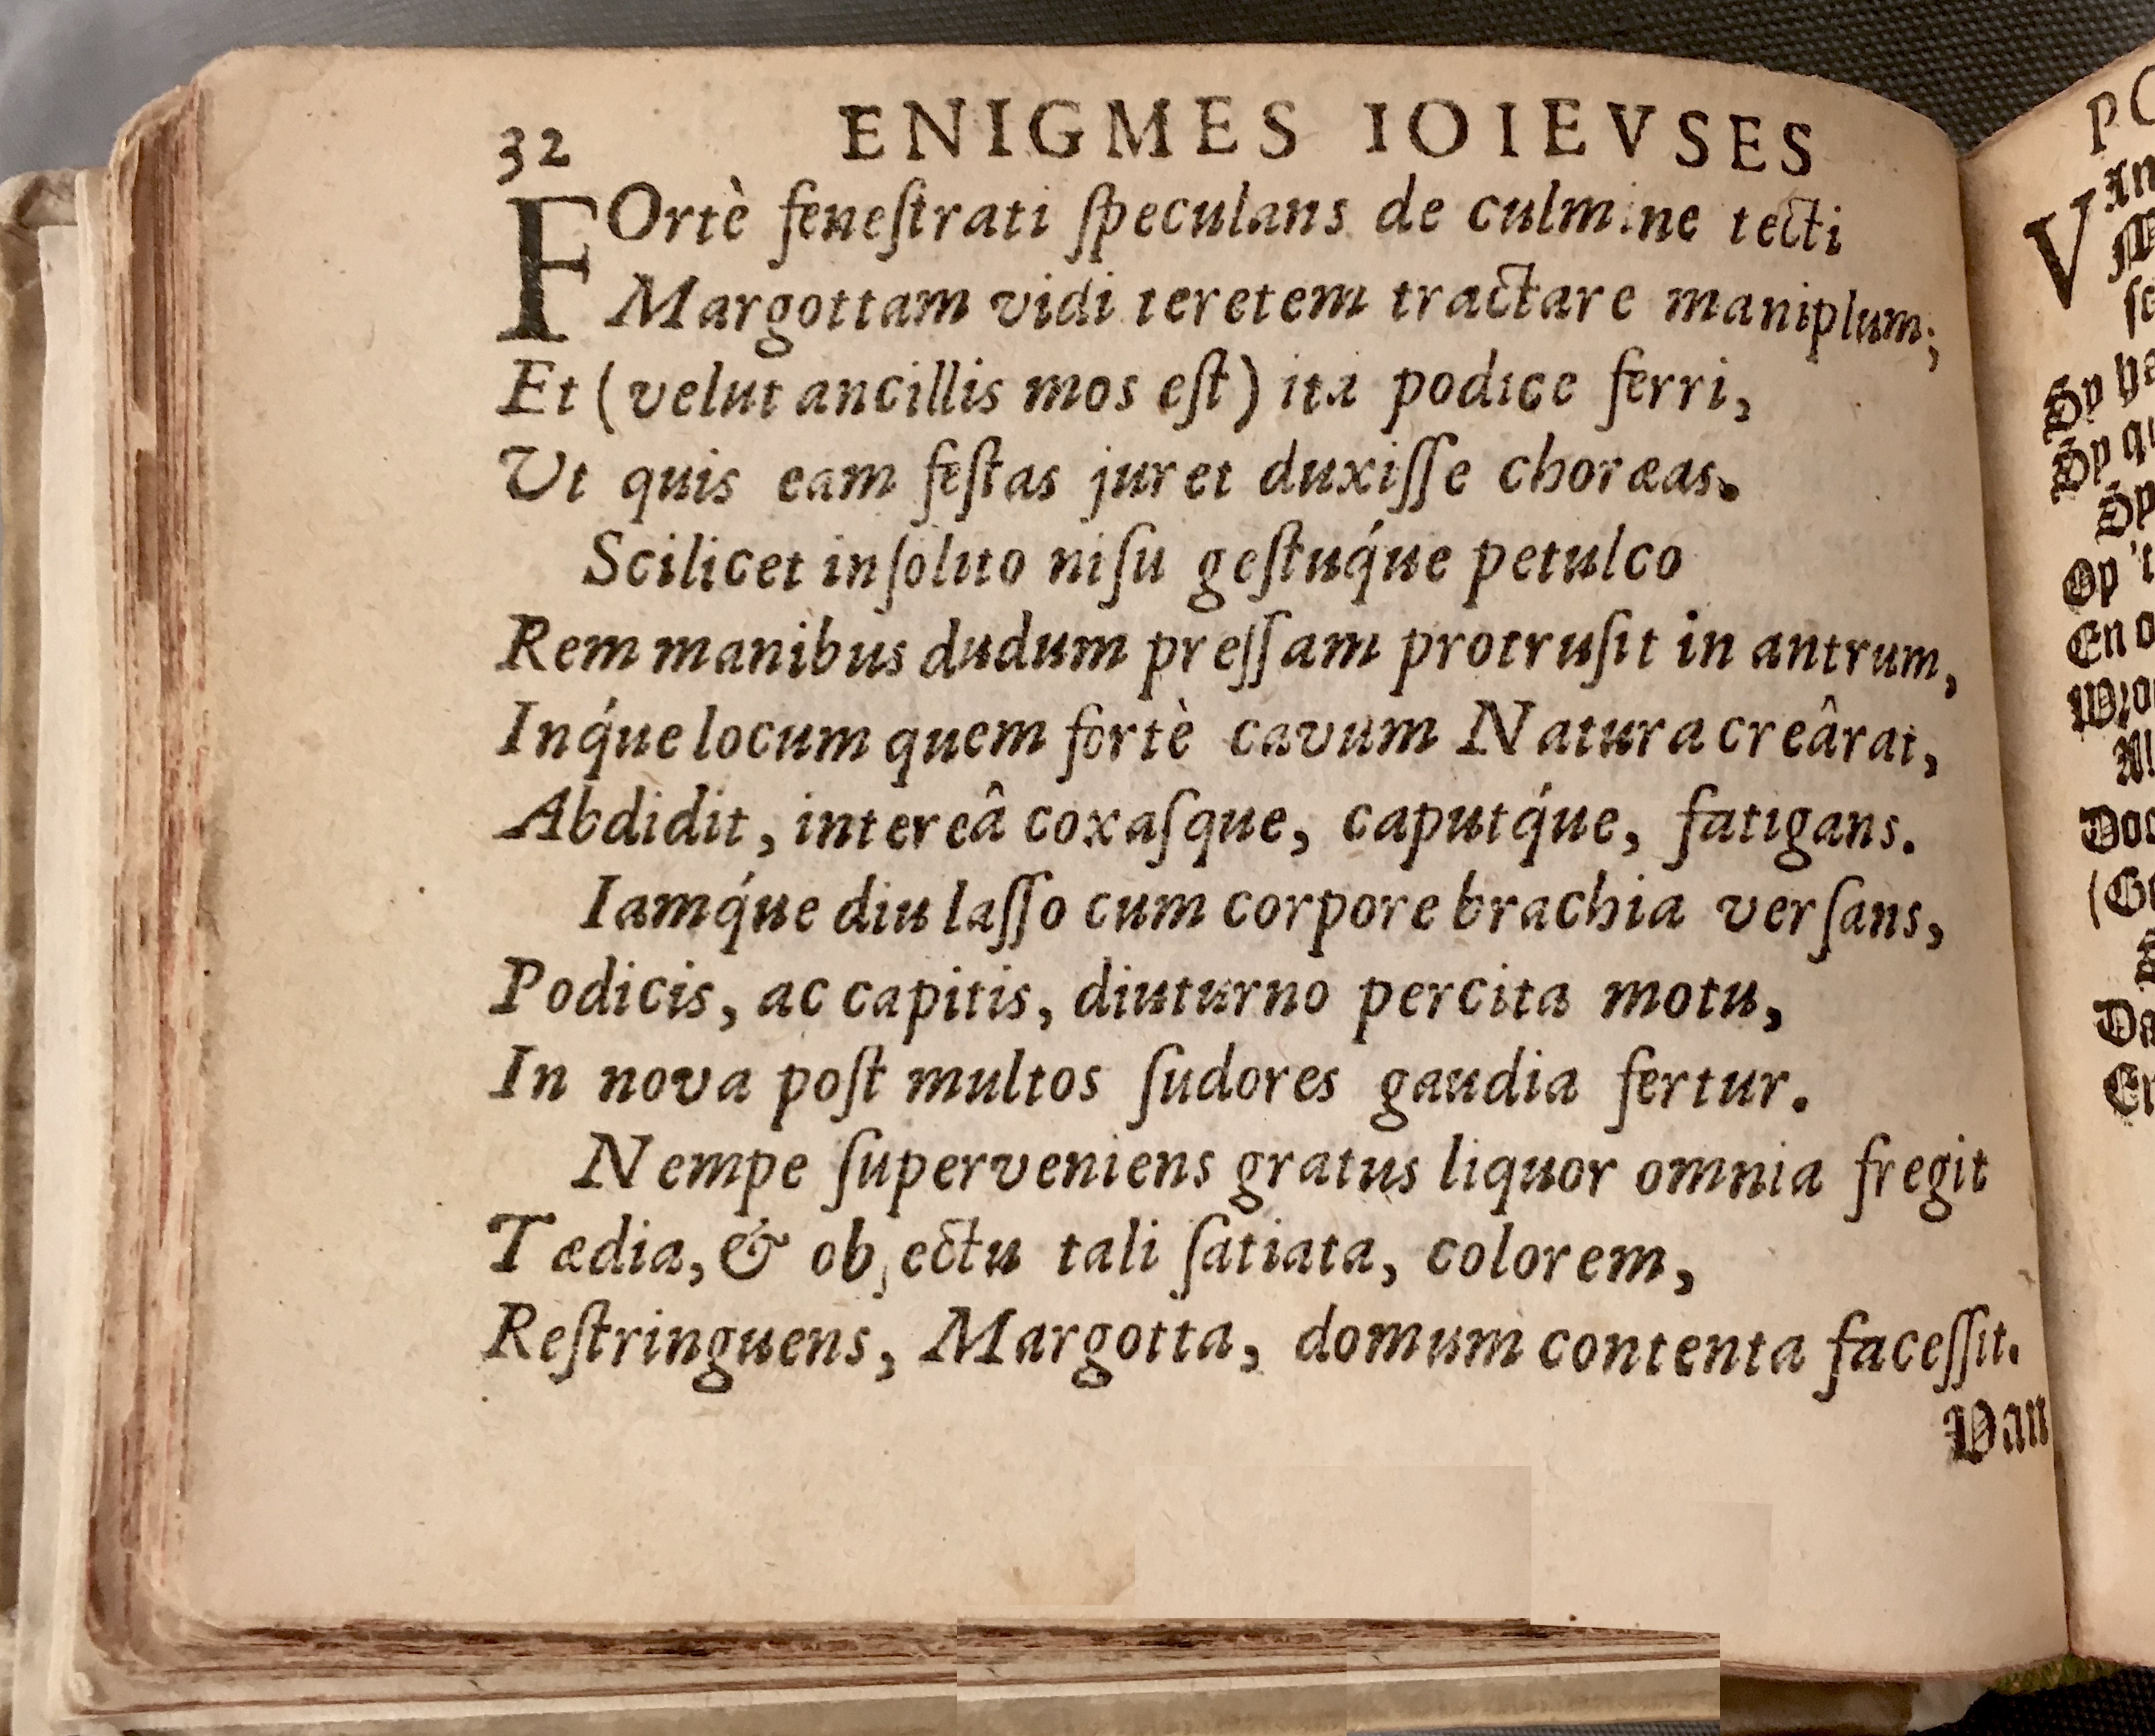 32 ENIGMES IOIEVSES
FOrtè feneſtrati ſpeculans de culmine tecti
Margottam vidi teretem tractare maniplum;
Et (velut ancillis mos eſt) ita podice ferri,
Ut quis eam feſtas juret duxiſſe choræas.
Scilicet inſolito niſu geſtuq́ue petulco
Rem manibus dudum preſſam protruſit in antrum,
Inq́ue locum quem fortè cavum Natura creârat,
Abdidit, intereâ coxaſque, caputq́ue, fatigans.
Iamq́ue diu laſſo cum corpore brachia verſans,
Podicis, ac capitis, diuturno percita motu,
In nova poſt multos ſudores gaudia fertur.
Nempe ſuperveniens gratus liquor omnia fregit
Tædia, & objectu tali ſatiata, colorem,
Reſtringuens, Margotta, domum contenta faceſſit.
Van
PO
V
Sy
Sy
Sy
Op 't
En